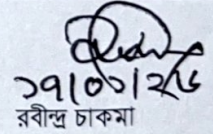 ১৭/০১/২৬
রবীন্দ্র চাকমা